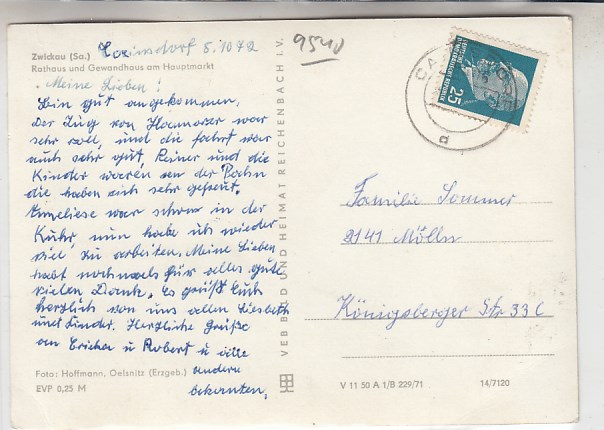 Zwickau (Sa.)
Rathaus und Gewandhaus am Hauptmarkt
5.10.72
Meine Lieben!
Bin gut angekommen,
der Zug von Hannover war
sehr voll, und die fahrt war
auch sehr gut, Reiner und die
Kinder waren an der Bahn
die haben sich sehr gefreut.
Anneliese war schon in der
Kuhr, nun habe ich wieder
viel zu arbeiten. Meine Lieben
habt nochmals für alles gute
vielen Dank, Es grüßt Euch
herzlich von uns allen Liesbeth
und Kinder. Herzliche Grüße
an Erika u Robert u alle
andern
bekannten,
Foto: Hoffmann, Oelsnitz (Erzgeb.)
EVP 0,25 M
VEB BILD UND HEIMAT REICHENBACH i. V.
9540
25
DEUTSCHE DEMOKRATISCHE REPUBLIK
d
Familie Sommer
2141 Mölln
Königsberger Str 33 C
V 11 50 A 1/B 229/71
14/7120